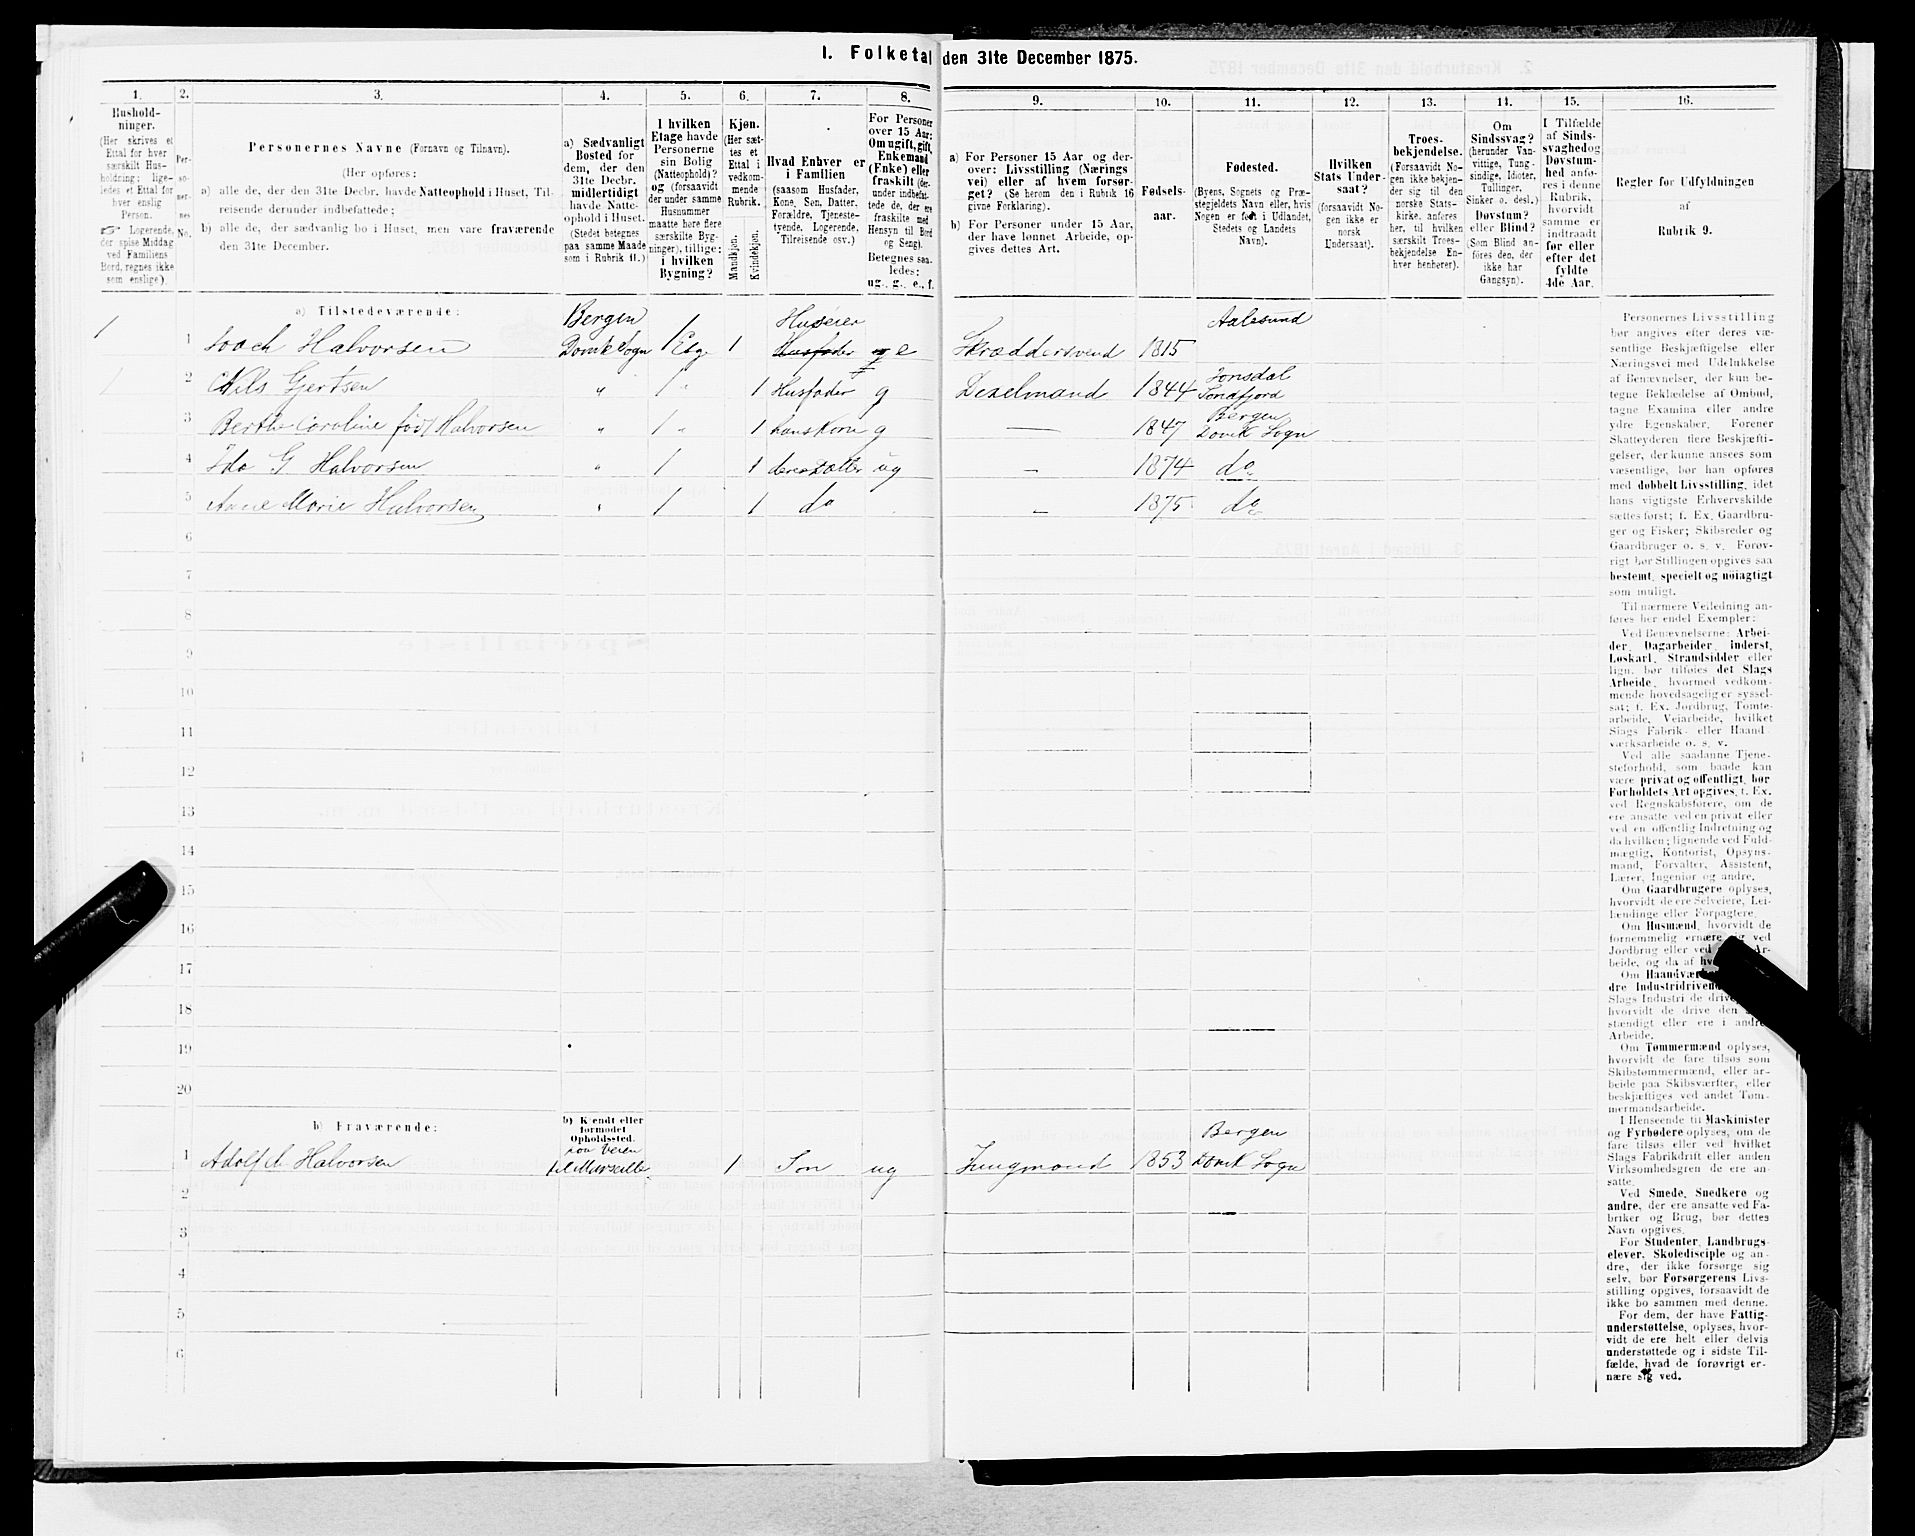 1. Folketal den 31te December 1875.
1. 2. 3. 4. 5. 6. 7. 8. 9. 10. 11. 12. 13. 14. 15. 16.
Hushold-
ninger.
(Her skrives et
Ettal for hver
særskilt Hus-
holdning; lige-
ledes et Ettal for
hver enslig
Person.
☞ Logerende,
der spise Middag
ved Familiens
Bord, regnes ikke
som enslige)
Per-
so-
ner-
nes
No.
Personernes Navne (Fornavn og Tilnavn).
(Her opføres:
a) alle de, der den 31te Decbr. havde Natteophold i Huset, Til-
reisende derunder indbefattede;
b) alle de, der sædvanlig bo i Huset, men vare fraværende
den 31te December.
a) Sædvanligt
Bosted for
dem, der den
31te Decbr.
midlertidigt
havde Natte-
ophold i Huset.
(Stedet betegnes
paa samme Maade
som i Rubrik 11.)
I hvilken
Etage havde
Personerne
sin Bolig
(Natteophold)?
og (forsaavidt
der under samme
Husnummer
maatte høre flere
særskilte Byg-
ninger), tillige:
i hvilken
Bygning?
Kjøn.
(Her sæt-
tes et
Ettal i
vedkom-
mende
Rubrik.
Mandkjøn.
Kvindekjøn.
Hvad Enhver er
i Familien
(saasom Husfader,
Kone, Søn, Datter,
Forældre, Tjeneste-
tyende, Logerende,
Tilreisende osv.)
For Personer
over 15 Aar:
Om ugift, gift,
Enkemand
(Enke) eller
fraskilt (der-
under indbefat-
tede de, der ere
fraskilte med
Hensyn til Bord
og Seng).
Betegnes saa-
ledes:
ug., g., e., f.
a) For Personer 15 Aar og der-
over: Livsstilling (Nærings-
vei) eller af hvem forsør-
get? (Se herom den i Rubrik 16
givne Forklaring).
b) For Personer under 15 Aar,
der have lønnet Arbeide, op-
gives dettes Art.
Fødsels-
aar.
Fødested.
(Byens, Sognets og Præ-
stegjeldets Navn eller, hvis
Nogen er født i Udlandet,
Stedets og Landets
Navn).
Hvilken
Stats Under-
saat?
(forsaavidt No-
gen ikke er
norsk
Undersaat).
Troes-
bekjendelse.
(Forsaavidt No-
gen ikke bekjen-
der sig til den
norske Stats-
kirke, anføres
her, til hvilken
særskilt Troes-
bekjendelse En-
hver henhører).
Om
Sindssvag?
(herunder Van-
vittige, Tung-
sindige, Idioter,
Tullinger,
Sinker o. desl.)
Døvstum?
eller Blind?
(Som Blind an-
føres den, der
ikke har
Gangsyn).
I Tilfælde
af Sinds-
svaghed og
Døvstum-
hed anfø-
res i denne
Rubrik,
hvorvidt
samme er
indtraadt
før eller
efter det
fyldte
4de Aar.
Regler for Udfyldningen
af
Rubrik 9.
a) Tilstedeværende:
Bergen Huseier Aalesund
1 1 Halvorsen Domk Sogn 1 Etg 1 Husfader e Skræddersvend 1815
1 2 Nils Gjertsen " 1 " 1 Husfader g 1844 Jonsdal
Søndfjord
3 Berthe Caroline fød Halvorsen " 1 " 1 hans Kone g — 1847 Bergen
Domk Sogn
4 Ida G Halvorsen " 1 1 deres Datter ug — 1874 do
5 Anne Marie Halvorsen " 1 1 do — 1875 do
6
7
8
9
10
11
12
13
14
15
16
17
18
19
20
b) Fraværende:
b) Kjendt eller
formodet
Opholdssted.
paa Veien Bergen
1 Adolf Halvorsen til Marseille 1 Søn ug Jungmand 1853 Domk Sogn
2
3
4
5
6
Personernes Livsstilling
bør angives efter deres væ-
sentlige Beskjæftigelse eller
Næringsvei med Udelukkelse
af Benævnelser, der kun be-
tegne Beklædelse af Ombud,
tagne Examina eller andre
ydre Egenskaber. Forener
Skatteyderen flere Beskjæfti-
gelser, der kunne ansees som
væsentlige, bør han opføres
med dobbelt Livsstilling, idet
hans vigtigste Erhvervskilde
sættes først; f. Ex. Gaardbru-
ger og Fisker; Skibsreder og
Gaardbruger o. s. v. Forøv-
rigt bør Stillingen opgives saa
bestemt, specielt og nøiagtigt
som muligt.
Til nærmere Veiledning an-
føres her endel Exempler:
Ved Benævnelserne: Arbei-
der, Dagarbeider, Inderst,
Løskarl, Strandsidder eller
lign. bør tilføies det Slags
Arbeide, hvormed vedkom-
mende hovedsagelig er syssel-
sat; f. Ex. Jordbrug, Tomte-
arbeide, Veiarbeide, hvilket
Slags Fabrik- eller Haand-
værksarbeide o. s. v.
Ved alle saadanne Tjene-
steforhold, som baade kan
være privat og offentligt, bør
Forholdets Art opgives, f. Ex.
ved Regnskabsførere, om de
ere ansatte ved en privat eller
ved en offentlig Indretning og
da hvilken; lignende ved Fuld-
mægtig, Kontorist, Opsyns-
mand, Forvalter, Assistent,
Lærer, Ingeniør og andre.
Om Gaardbrugere oplyses,
hvorvidt de ere Selveiere, Lei-
lændinge eller Forpagtere.
Om Husmænd, hvorvidt de
fornemmelig ernære sig ved
Jordbrug eller ved Ar-
beide, og da af
Om
dre Industridrivende
Slags Industri de drive
hvorvidt de drive den
stændigt eller ere i andres
Arbeide.
Om Tømmermænd oplyses,
hvorvidt de fare tilsøs som
Skibstømmermænd, eller ar-
beide paa Skibsværfter, eller
beskjæftiges ved andet Tøm-
mermandsarbeide.
I Henseende til Maskinister
og Fyrbødere oplyses, om de
fare tilsøs eller ved hvilket
Slags Fabrikdrift eller anden
Virksomhedsgren de ere an-
satte.
Ved Smede, Snedkere og
andre, der ere ansatte ved Fa-
briker og Brug, bør dettes
Navn opgives.
For Studenter, Landbrugs-
elever, Skoledisciple og an-
dre, der ikke forsørge sig
selv, bør Forsørgerens Livs-
stilling opgives, forsaavidt de
ikke bo sammen med denne.
For dem, der have Fattig-
understøttelse, oplyses, hvor-
vidt de ere helt eller delvis
understøttede og i sidste Til-
fælde, hvad de forøvrigt er-
nære sig ved.